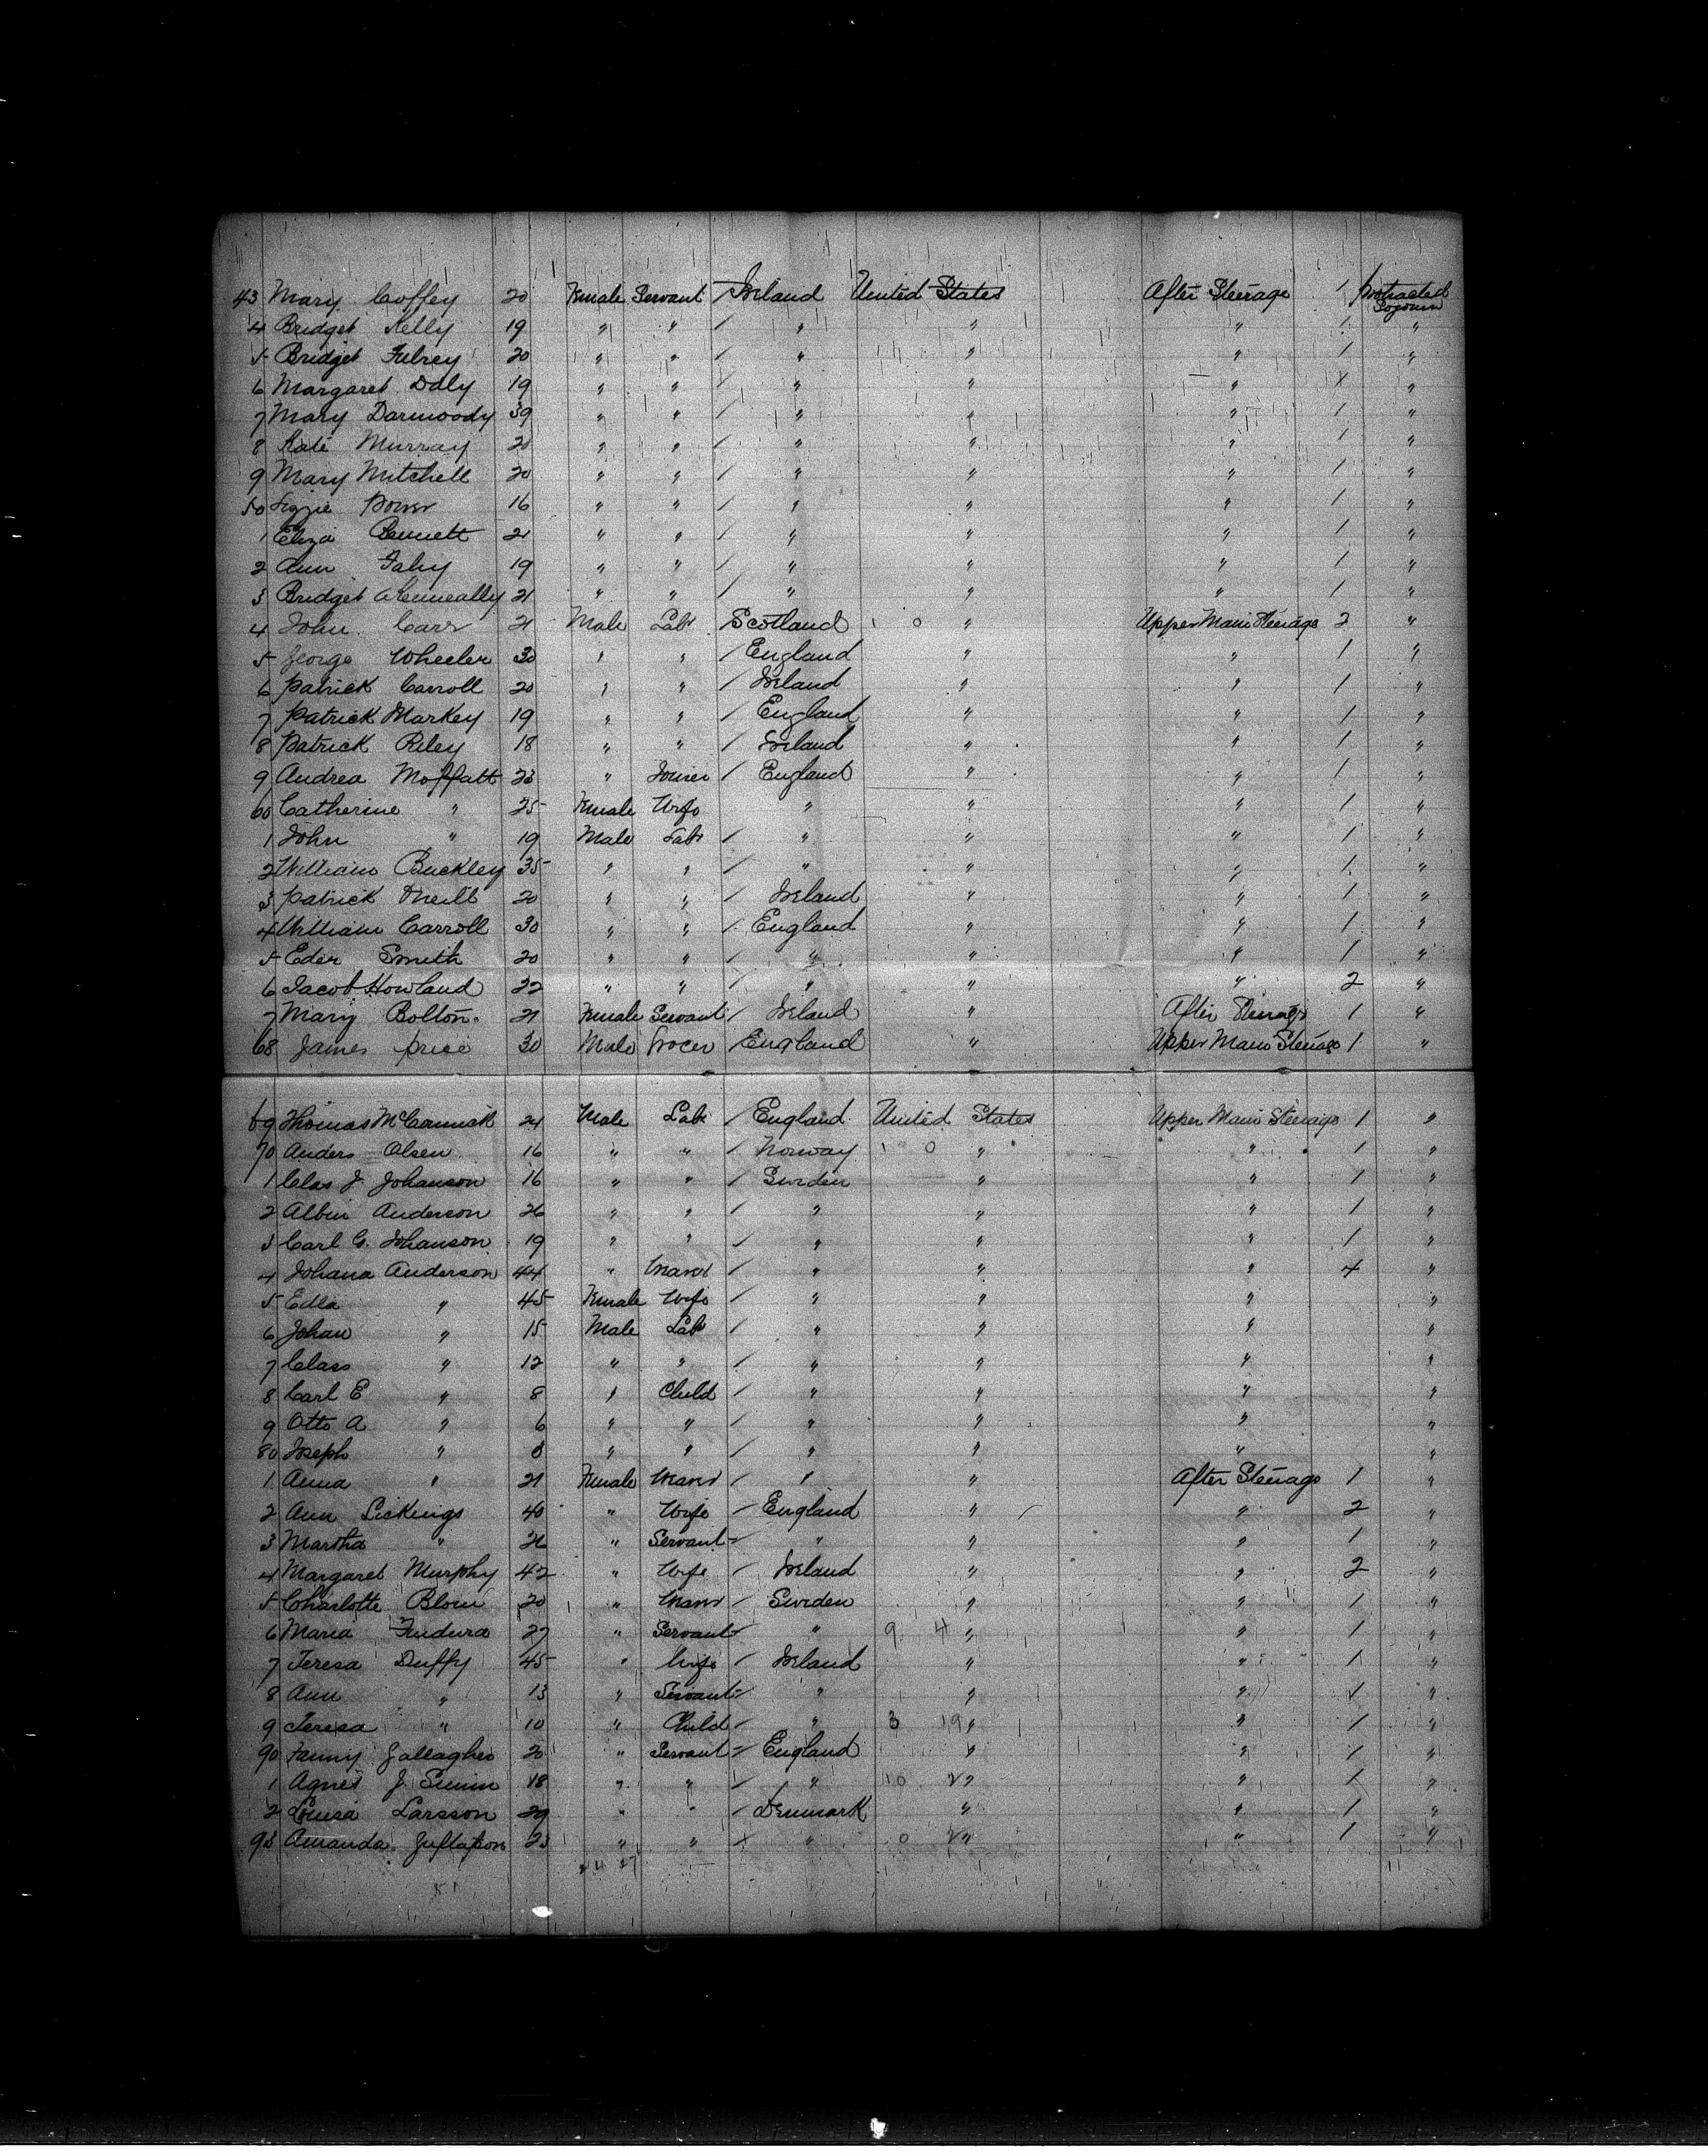 43 Mary Coffey 20 Female Servant / Ireland United States After Steerage 1 Protracted Sojourn
4 Bridget Kelly 19 " " / " " " 1 "
5 Bridget 20 " " / " " " 1 "
6 Margaret Daly 19 " " / " " " 1 "
7 Mary Darmoody 39 " " / " " " 1 "
8 Kate Murray 20 " " / " " " 1 "
9 Mary Mitchell 20 " " / " " " 1 "
50 Lizzie Power 16 " " / " " " 1 "
1 Eliza Bennett 21 " " / " " " 1 "
2 Ann Fahy 19 " " / " " " 1 "
3 Bridget A Kenneally 21 " " / " " " 1 "
4 John Carr 21 Male Labr Scotland 1 0 " Upper Main Steerage 2 "
5 George Wheeler 30 " " / England " " 1 "
6 Patrick Carroll 20 " " / Ireland " " 1 "
7 Patrick Markey 19 " " / England " " 1 "
8 Patrick Riley 18 " " / Ireland " " 1 "
9 Andrea Moffatt 23 " Joiner / England " " 1 "
60 Catherine " 25 Female Wife " " " 1 "
1 John " 19 Male Labr / " " " 1 "
2 William Buckley 35 " " / " " " 1 "
3 Patrick Oneill 20 " " / Ireland " " 1 "
4 William Carroll 30 " " / England " " 1 "
5 Eder Smith 20 " " / " " " 1 "
6 Jacob Howland 22 " " / " " " 2 "
7 Mary Bolton 21 Female Servant / Ireland " After Steerage 1 "
68 James Price 30 Male Grocer / England " Upper Main Steerage 1 "
69 Thomas McCormick 24 Male Labr / England United States Upper Main Steerage 1 "
70 Anders Olsen 16 " " / Norway 1 0 " " 1 "
1 Clas J. Johanson 16 " " / Sweden " " 1 "
2 Albin Anderson 26 " " / " " " 1 "
3 Carl G. Johanson 19 " " / " " " 1 "
4 Johana Anderson 44 " / " " " 4 "
5 Edla " 45 Female Wife / " " " "
6 Johan " 15 Male Labr / " " " "
7 Class " 12 " " / " " " "
8 Carl E " 8 " Child / " " " "
9 Otto A " 6 " " / " " " "
80 Joseph " " " / " " " "
1 Anna " 21 Female / " " After Steerage 1 "
2 Ann Lickings 40 " Wife / England " " 2 "
3 Martha " 26 " Servant / " " " 1 "
4 Margaret Murphy 42 " Wife / Ireland " " 2 "
5 Charlotte Blom 20 " / Sweden " " 1 "
6 Maria 27 " Servant / " 9 4 " " 1 "
7 Teresa Duffy 45 " Wife / Ireland " " 1 "
8 Ann " 13 " Servant / " " " 1 "
9 Teresa " 10 " Child / " 3 19 " " 1 "
90 Fanny Gallagher 20 " Servant / England " " 1 "
1 Agnes J. 18 " " / " 10 " " 1 "
2 Louisa Larsson 29 " " / Denmark " " 1 "
93 Amanda 23 " " x " 0 " " 1 "